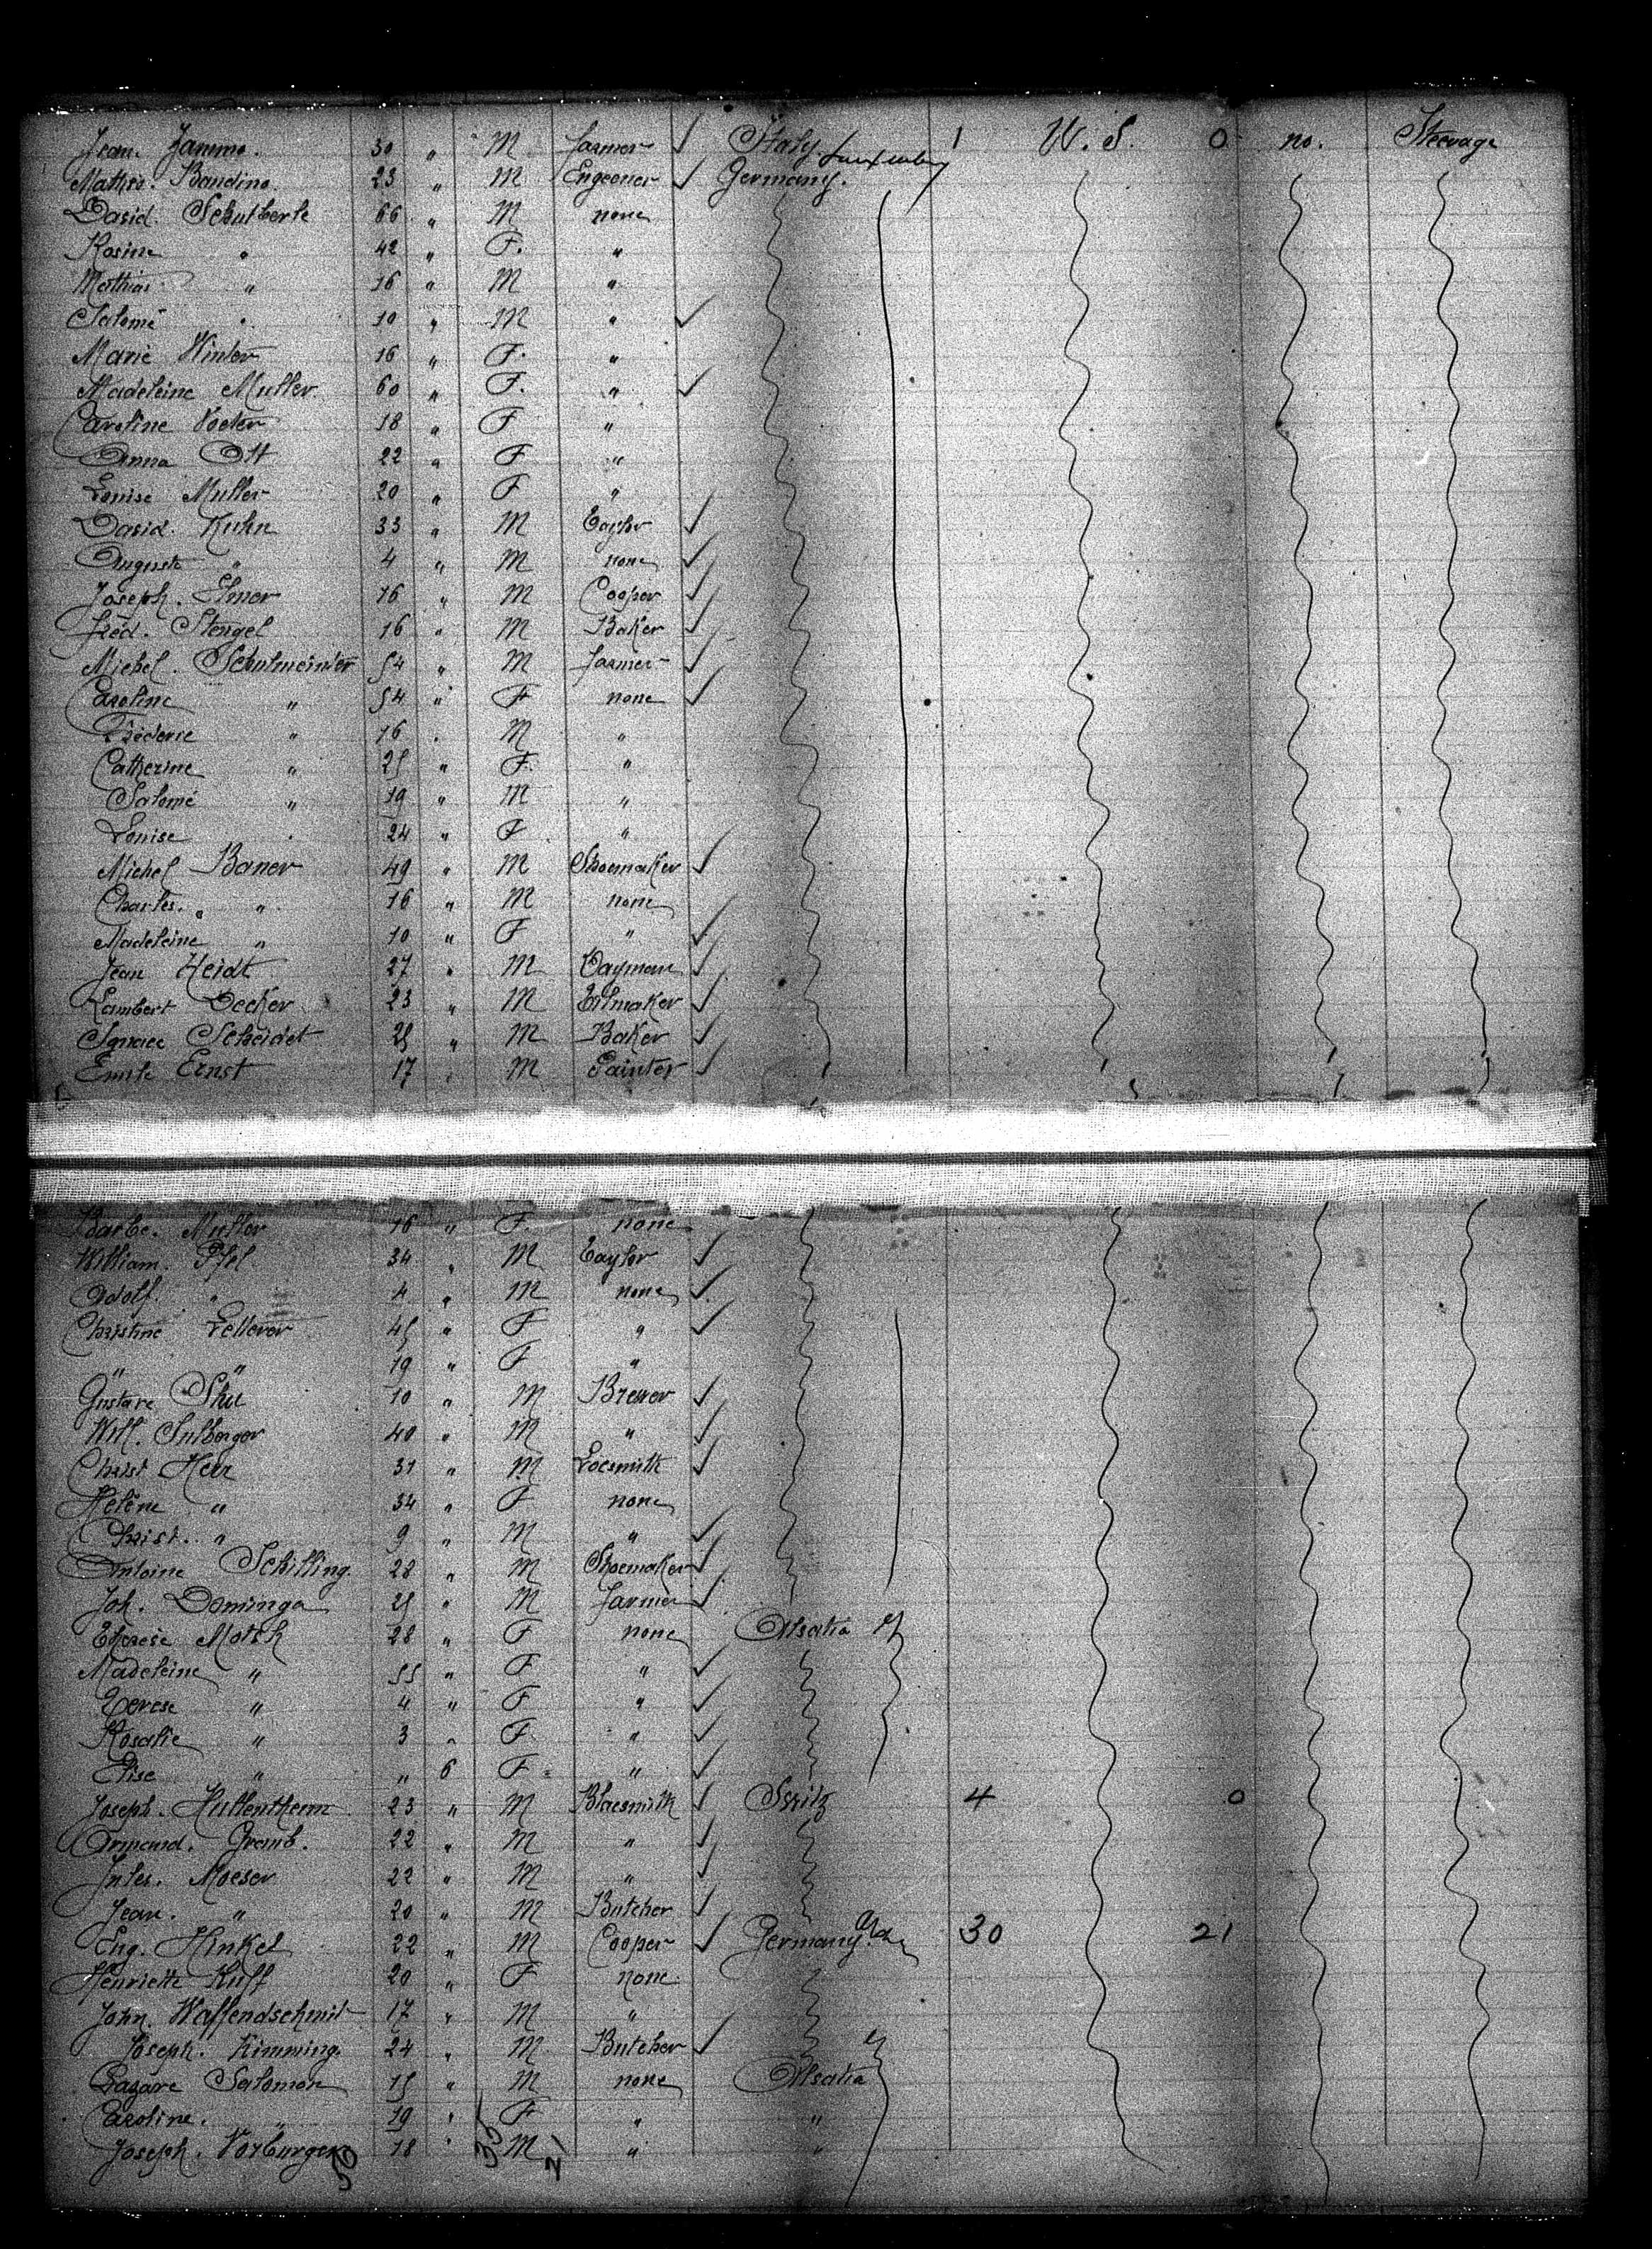 Jean. Jammo. 30 " M farmer ✓ Italy 1 U. S. 0 no. Steerage
Mathis. Bandino. 23 " M Engeener ✓ Germany. Luxemburg
David. Schulberte 66 " M none
Rosine " 42 " F. "
Mathias " 16 " M "
Salomé " 10 " M " ✓
Marie Winter 16 " F. "
Madeleine Muller. 60 " F. " ✓
Caroline Voeler 18 " F "
Anna Ott 22 " F "
Louise Muller 20 " F "
David. Kuhn 33 " M Taylor ✓
Auguste " 4 " M none ✓
Joseph. Elmer 16 " M Cooper ✓
fréd. Stengel 16 " M Baker ✓
Michel. Schulmeister 54 " M farmer ✓
Caroline " 54 " F none ✓
Fréderic " 16 " M "
Catherine " 25 " F. "
Salomé " 19 " M "
Louise " 24 " F "
Michel Baner 49 " M Shoemaker ✓
Charles. " " 16 " M none
Madeleine " 10 " F " ✓
Jean Heidt 27 " M Dayman ✓
Lambert Decker 23 " M Tilmaker ✓
Ignace Scheidet 25 " M Baker ✓
Emile Ernst 17 " M Painter ✓
Barbe. Muller 16 " F. none
William. Pfel 34 " M Taylor ✓
Adolf. " 4 " M none ✓
Christine Fellerer 45 " F " ✓
" " 19 " F "
Gustave Shu 10 " M Brewer ✓
Will. Sulberger 40 " M " ✓
Christ Herr 31 " M Locsmith ✓
Helène " 34 " F none
Christ. " 9 " M " ✓
Antoine Schilling. 28 " M Shoemaker ✓
Joh. Dominga 25 " M farmer ✓
Therese Motsh 28 " F none Alsatia
Madeleine " 55 " F " ✓
Terese " 4 " F " ✓
Rosalie " 3 " F " ✓
Elise " " 6 F " ✓
Joseph. Hullentherm 23 " M Blacsmith ✓ Switz 4 0
Armand. Gramb. 22 " M " ✓
Jules. Moeser 22 " M " ✓
Jean. " 20 " M Butcher ✓
Eug. Hinkel 22 " M Cooper ✓ Germany. 30 21
Henriette Kuff 20 " F none.
John. Waffendschmit 17 " M "
Joseph. Kimming. 24 " M Butcher ✓
Lazare Salomon 15 " M none Alsatia
Caroline. " 19 " F " "
Joseph. Vorburger 18 " M " "